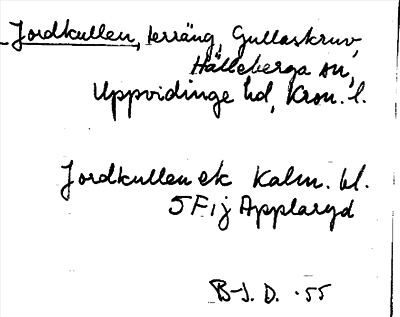 Jordkullen, terräng, Gullaskruv,
Hälleberga sn,
Uppvidinge hd, Kron. l.
Jordkullen ek Kalm. bl.
5F ij Applaryd
B-J. D. -55